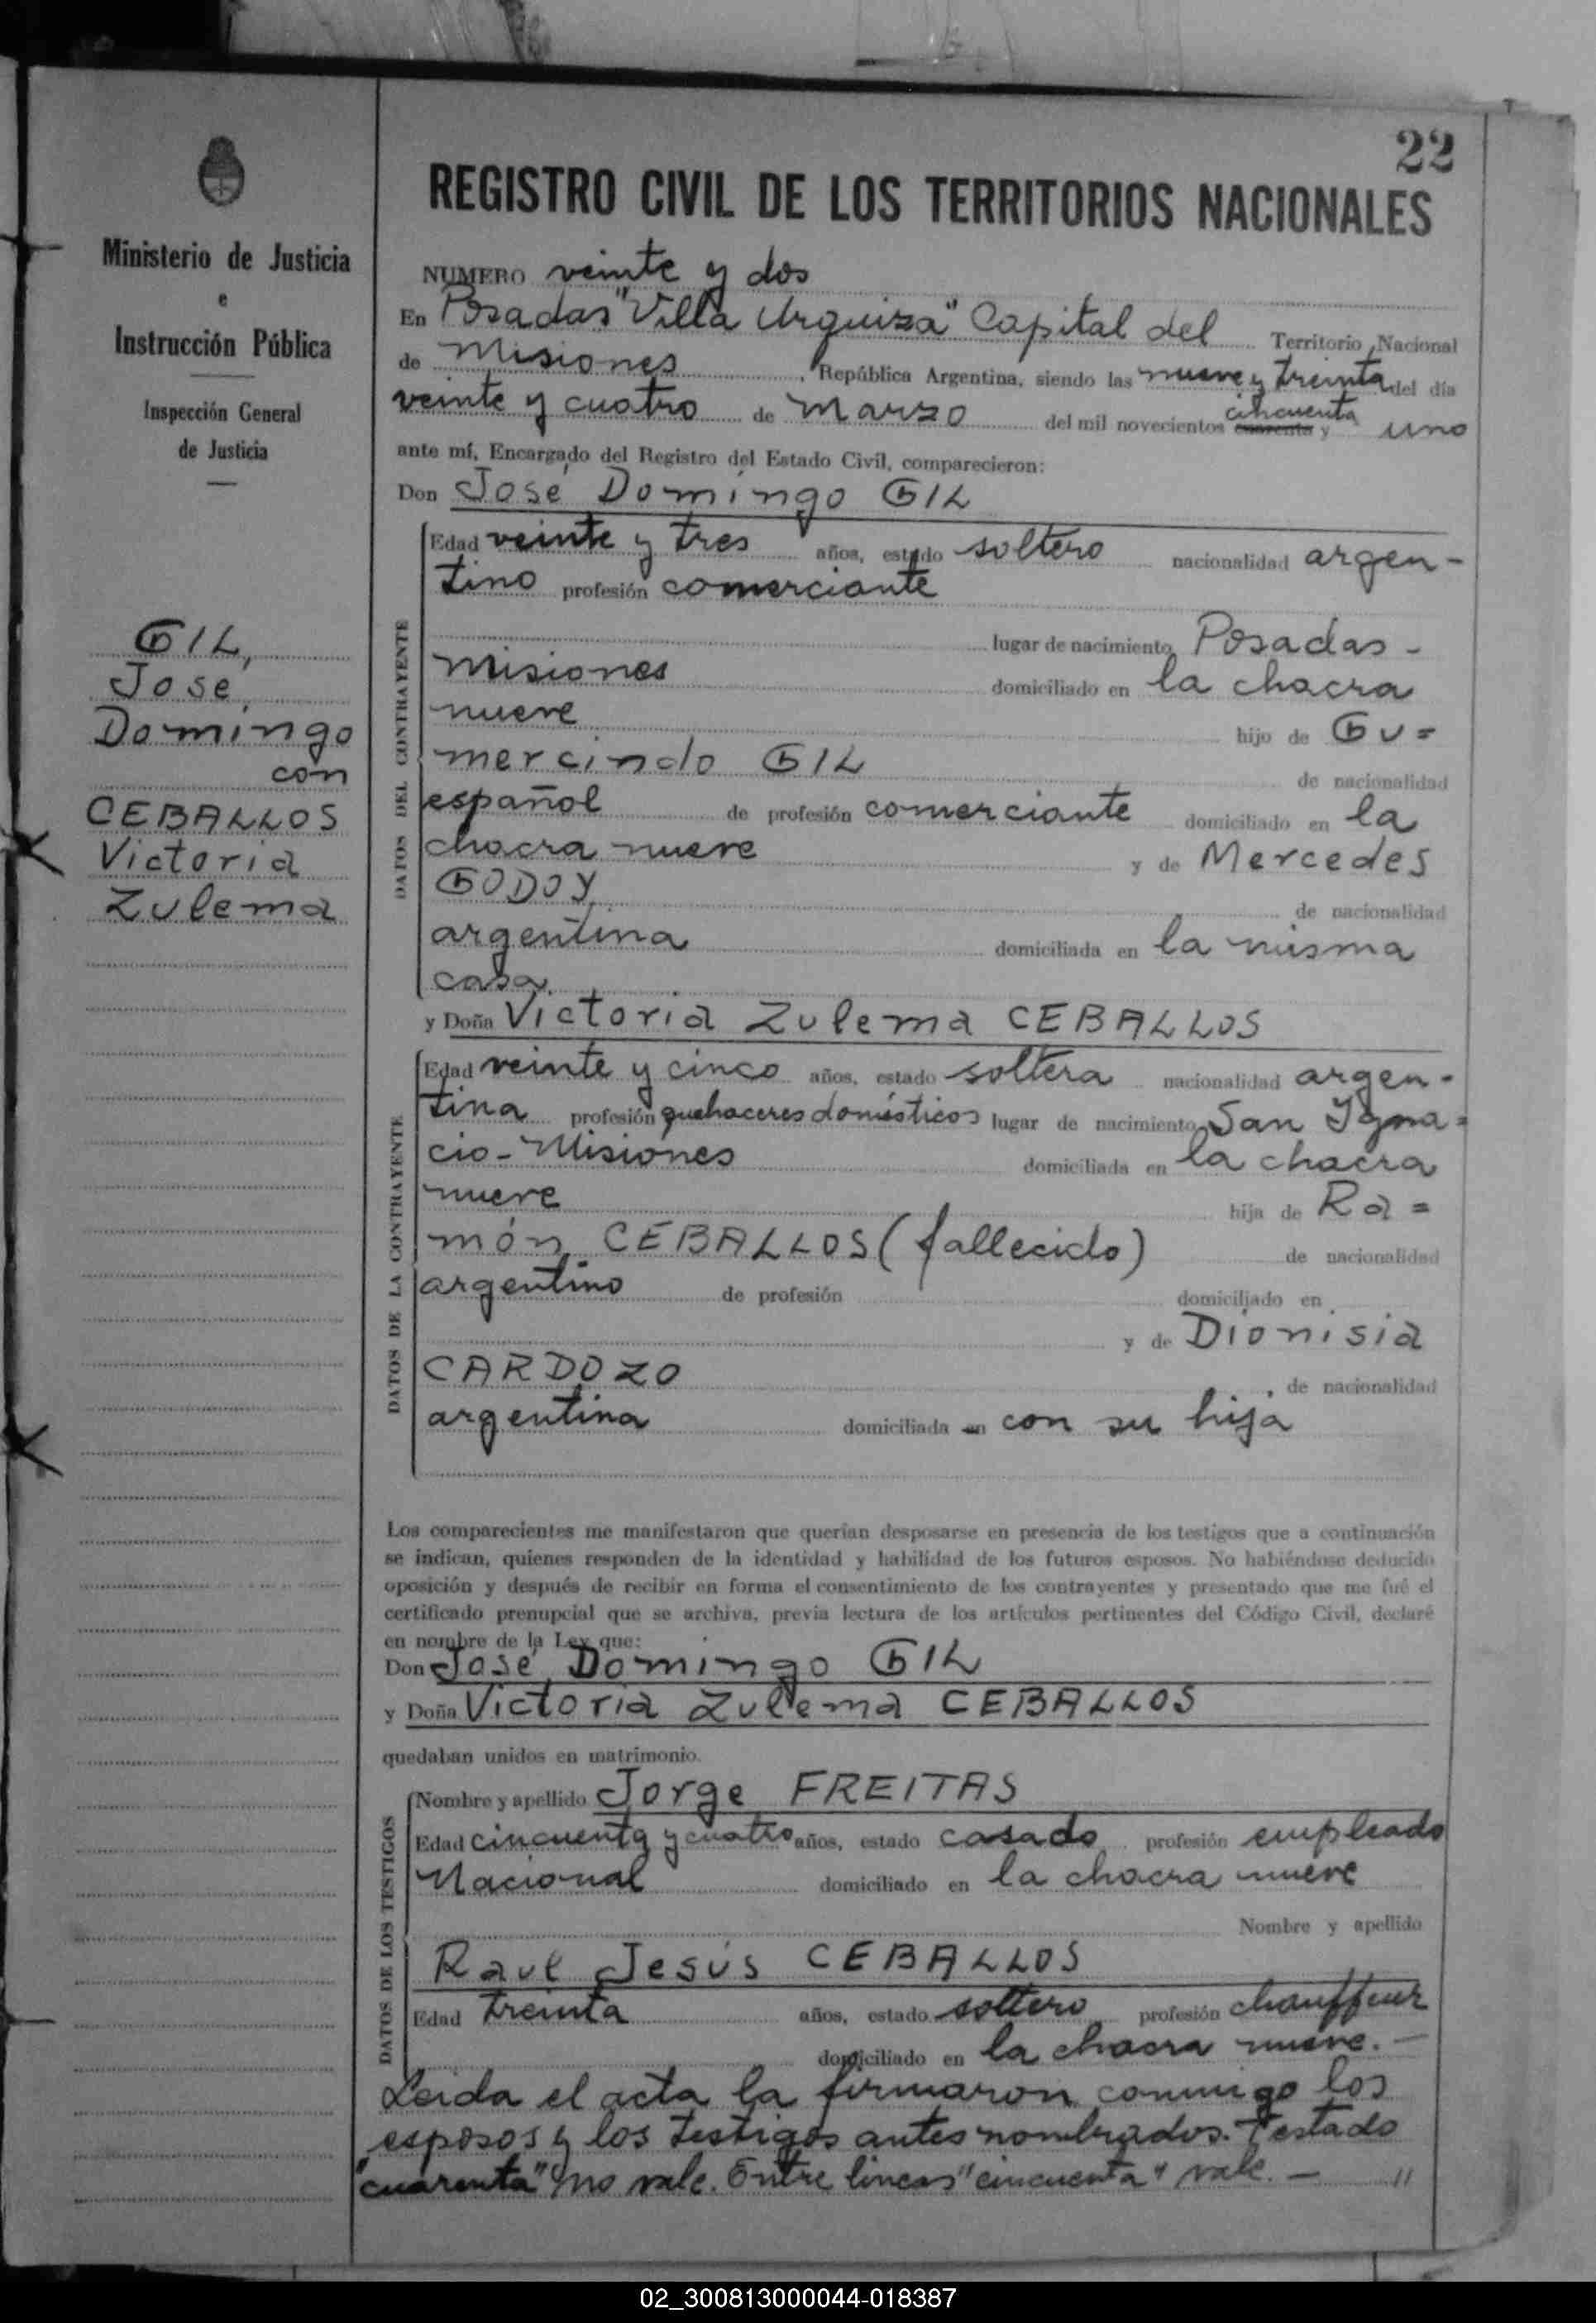 22
REGISTRO CIVIL DE LOS TERRITORIOS NACIONALES
Ministerio de Justicia
e
Instrucción Pública
Inspección General
de Justicia
GIL,
José
Domingo
con
CEBALLOS
Victoria
Zulema
NUMERO veinte y dos
En Posadas "Villa Urquiza" Capital del Territorio Nacional
de Misiones, República Argentina, siendo las nueve y treinta del día
veinte y cuatro de Marzo del mil novecientos cincuenta cuarenta y uno
ante mí, Encargado del Registro del Estado Civil, comparecieron:
Don José Domingo GIL
DATOS DEL CONTRAYENTE
Edad veinte y tres años, estado soltero nacionalidad argen-
tino profesión comerciante
lugar de nacimiento Posadas -
Misiones domiciliado en la chacra
nueve hijo de Gu=
mercindo GIL de nacionalidad
español de profesión comerciante domiciliado en la
chacra nueve y de Mercedes
GODOY de nacionalidad
argentina domiciliada en la misma
casa.
y Doña Victoria Zulema CEBALLOS
DATOS DE LA CONTRAYENTE
Edad veinte y cinco años, estado soltera nacionalidad argen-
tina profesión quehaceres domésticos lugar de nacimiento San Ygna=
cio - Misiones domiciliada en la chacra
nueve hija de Ra=
món CEBALLOS (fallecido) de nacionalidad
argentino de profesión domiciliado en
y de Dionisia
CARDOZO, de nacionalidad
argentina domiciliada en con su hija
Los comparecientes me manifestaron que querían desposarse en presencia de los testigos que a continuación
se indican, quienes responden de la identidad y habilidad de los futuros esposos. No habiéndose deducido
oposición y después de recibir en forma el consentimiento de los contrayentes y presentado que me fué el
certificado prenupcial que se archiva, previa lectura de los artículos pertinentes del Código Civil, declaré
en nombre de la Ley que:
Don José Domingo GIL
y Doña Victoria Zulema CEBALLOS
quedaban unidos en matrimonio.
DATOS DE LOS TESTIGOS
Nombre y apellido Jorge FREITAS
Edad cincuenta y cuatro años, estado casado profesión empleado
Nacional domiciliado en la chacra nueve
Nombre y apellido
Raul Jesús CEBALLOS
Edad treinta años, estado soltero profesión chauffeur
domiciliado en la chacra nueve. -
Leida el acta la firmaron conmigo los
esposos y los testigos antes nombrados. Testado
"cuarenta" no vale. Entre lineas "cincuenta" vale. - "
02_300813000044-018387